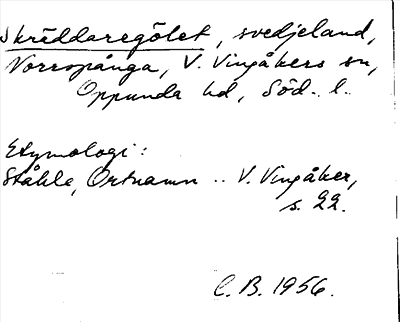 Skräddaregölet, svedjeland,
Norrspånga, V. Vingåkers sn,
Oppunda hd, Söd. l.
Etymologi:
Ståhle, Ortnamn .. V. Vingåker,
s. 22.
C. B. 1956.